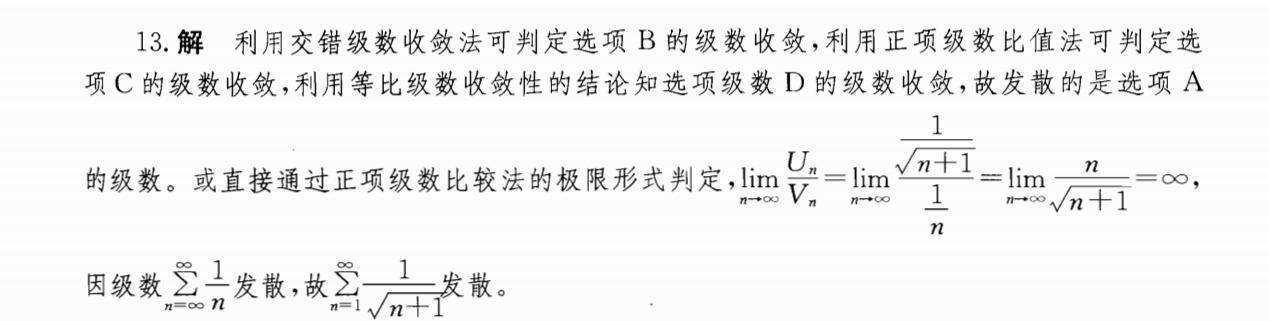 13. 解 利用交错级数收敛法可判定选项 B 的级数收敛,利用正项级数比值法可判定选
项 C 的级数收敛,利用等比级数收敛性的结论知选项级数 D 的级数收敛,故发散的是选项 A
的级数。或直接通过正项级数比较法的极限形式判定,$\lim_{n\to\infty}\frac{U_n}{V_n}=\lim_{n\to\infty}\frac{\frac{1}{\sqrt{n+1}}}{\frac{1}{n}}=\lim_{n\to\infty}\frac{n}{\sqrt{n+1}}=\infty$,
因级数 $\sum_{n=\infty}^{\infty}\frac{1}{n}$ 发散,故 $\sum_{n=1}^{\infty}\frac{1}{\sqrt{n+1}}$ 发散。